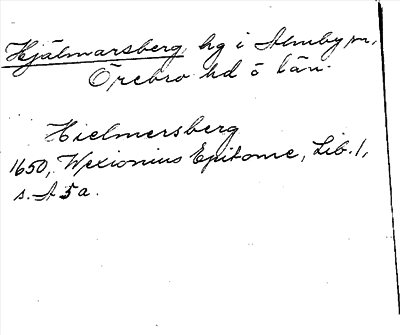 Hjälmarsberg, hg i Almby sn,
Örebro hd o län.
Hielmersberg
1650, Wexionius Epitome, Lib. 1,
s. A 5 a.